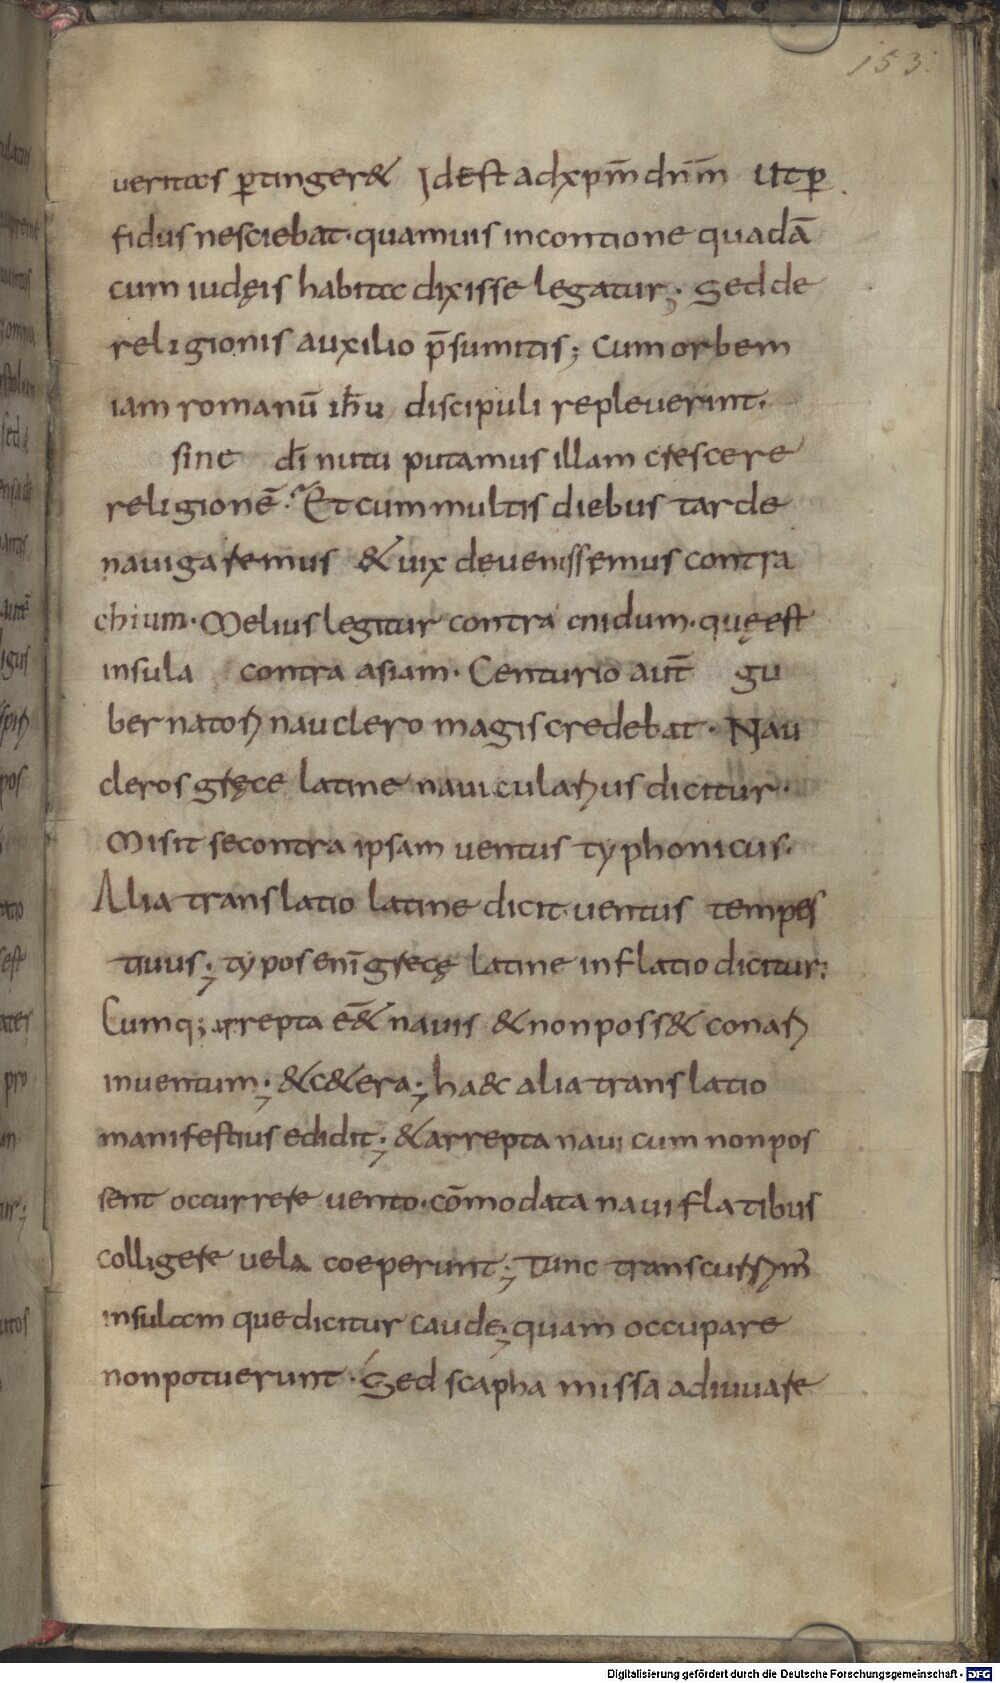 153.
ueritas ꝑtinger& Idest adxp̄m dn̄m Utꝑ
fidus nesciebat· quamuis incontione quadā
cum iudęis habita dixisse legatur; Sed de
religionis auxilio p̄sumitis; Cum orbem
iam romanū ih̄u discipuli repleuerint.
sine dī nutu putamus illam crescere
religionē? Et cum multis diebus tarde
nauigaremus & uix deuenissemus contra
chium· Melius legitur contra cnidum· quę est
insula contra asiam· Centurio aut̄ gu
bernatori nauclero magis credebat· Nau
cleros gręce latine nauicularius dicitur·
Misit secontra ipsam uentus typhonicus·
Alia translatio latine dicit uentus tempes
tiuus; typos enī grecę latine inflatio dicitur;
Cumq; arrepta ē& nauis & nonposs& conari
inuentum; &c&era; ha&c alia translatio
manifestius edidit; & arrepta naui cum nonpos
sent occurrere uento· cōmodata naui flatibus
colligere uela coeperunt; Tunc transcurrim̄
insulam que dicitur caude; quam occupare
nonpotuerunt· Sed scapha missa adiuuare
Digitalisierung gefördert durch die Deutsche Forschungsgemeinschaft · DFG